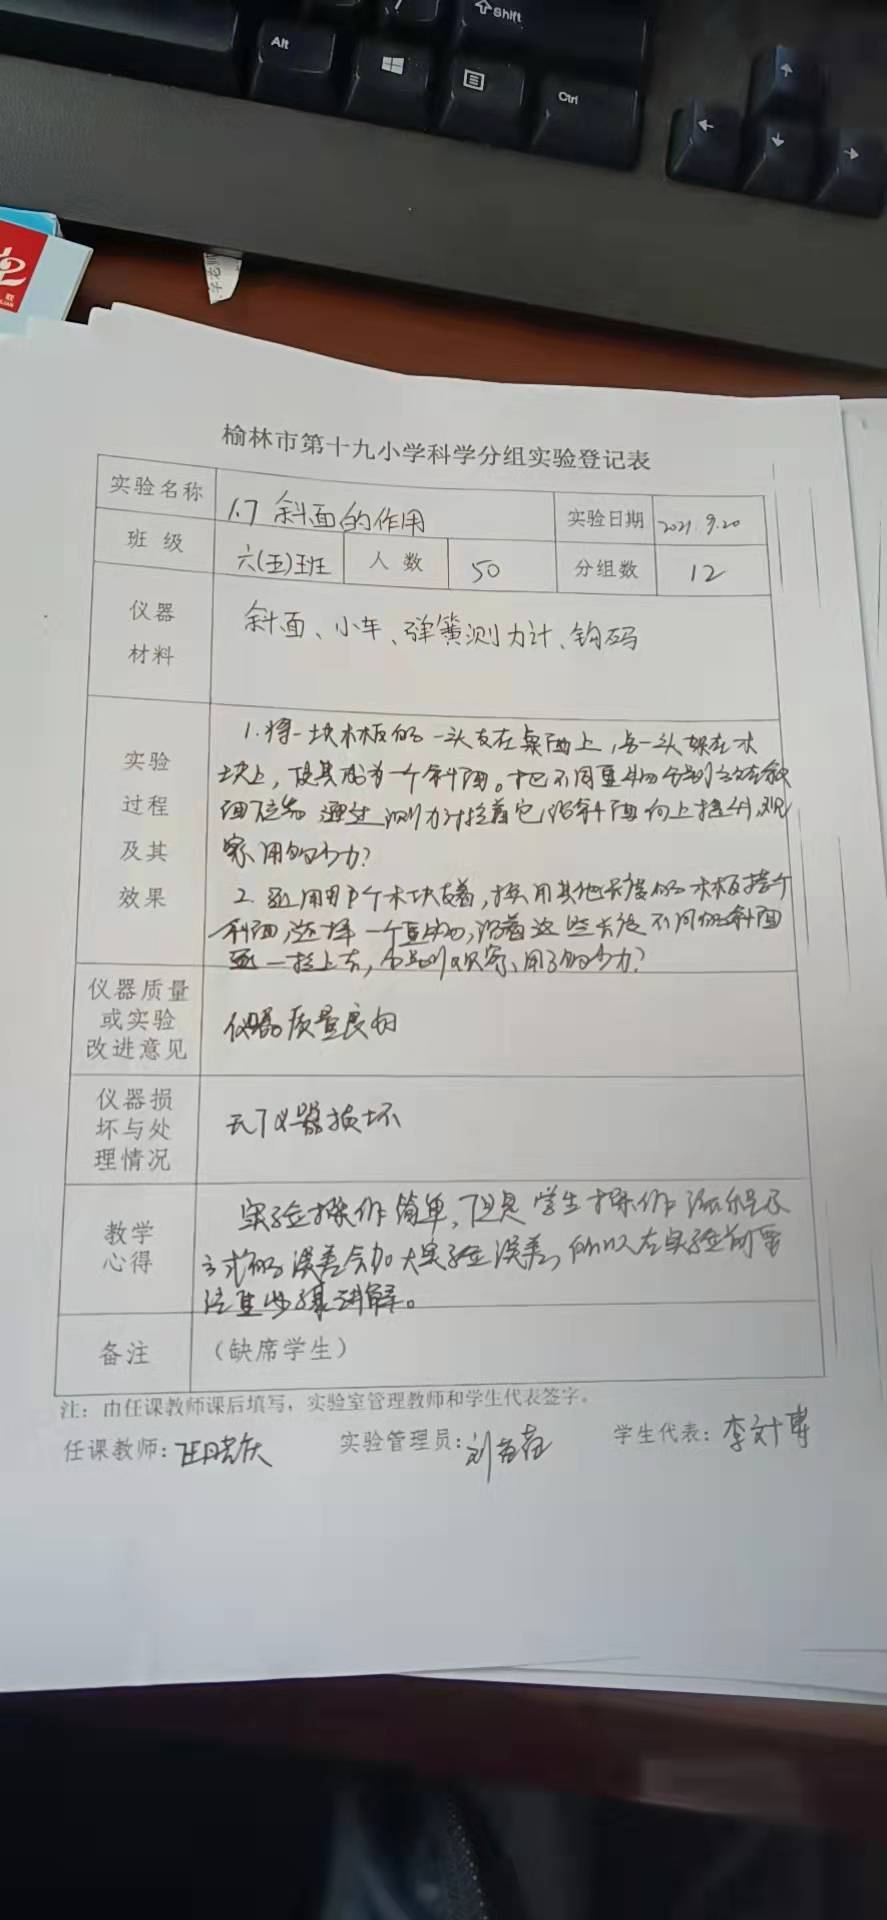 Shift
Alt
Ctrl
榆林市第十九小学科学分组实验登记表
实验名称 1.7 斜面的作用 实验日期 2021.9.20
班级 六(五)班 人数 50 分组数 12
仪器材料 斜面、小车、弹簧测力计、钩码
实验过程及其效果
1.将一块木板的一头支在桌面上,另一头架在木
块上,使其成为一个斜面。把不同重物分别放在斜
面底部 通过测力计拉着它沿斜面向上提升,观
察用的多力?
2. 用 个木块支着,换用其他长度的木板搭个
斜面,选择一个重物,沿着这些长度不同的斜面
一拉上去,分别观察、用了的多力?
仪器质量或实验改进意见 仪器质量良好
仪器损坏与处理情况 无仪器损坏
教学心得
实验操作简单,但是学生操作流程及
方式的误差会加大实验误差,所以在实验前要
注重步骤讲解。
备注 (缺席学生)
注:由任课教师课后填写,实验室管理教师和学生代表签字。
任课教师: 实验管理员: 刘 学生代表: 李